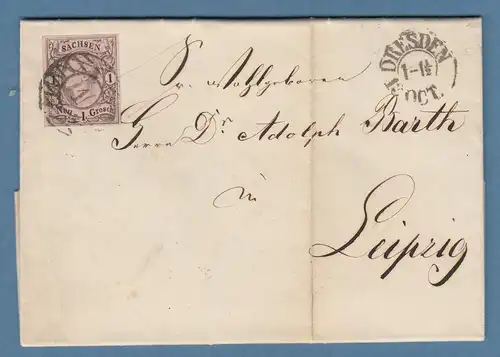 SACHSEN
1
1 Grosch
DRESDEN
1-1½
OCT.
Sr. Wohlgeboren
Herrn Dr. Adolph Barth
in
Leipzig